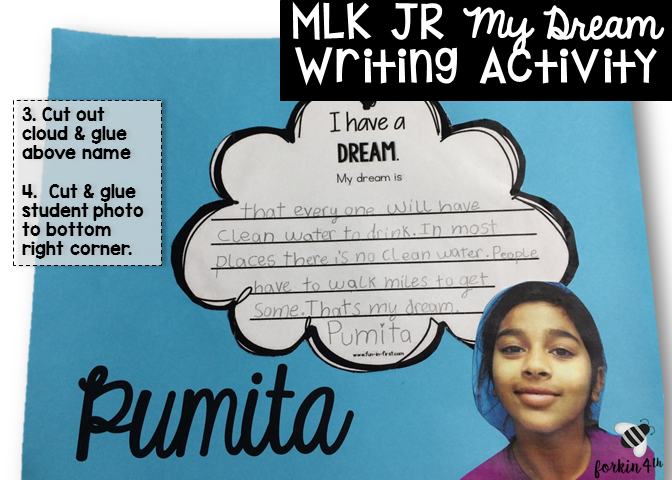 MLK JR My Dream
Writing Activity
3. Cut out
cloud & glue
above name
4. Cut & glue
student photo
to bottom
right corner.
I have a
DREAM.
My dream is
that every one will have
clean water to drink. In most
places there is no clean water. People
have to walk miles to get
some. Thats my dream.
Pumita
www.fun-in-first.com
Pumita
forkin 4th